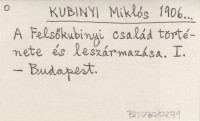 KUBINYI Miklós 1906...
A Felsőkubinyi család törté-
nete és leszármazása. I.
– Budapest.
321030/0271